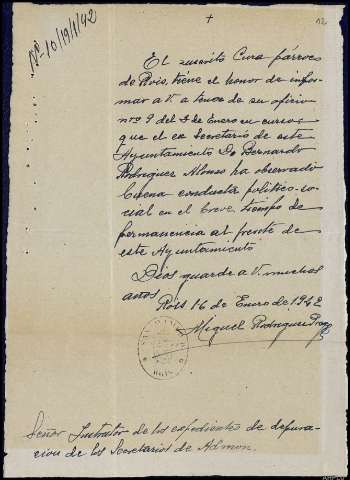 Nº-10/19/1/42
El suscrito Cura párroco
de Rois, tiene el honor de infor-
mar a V. a tenor de su oficio
nro. 9 del 5 de Enero en curso,
que el ex Secretario de este
Ayuntamiento Dn Bernardo
Rodriguez Alonso ha observado
buena conducta politico-so-
cial en el breve tiempo de
permanencia al frente de
este Ayuntamiento
Dios guarde a V. muchos
años
Rois 16 de Enero de 1942
Miguel Rodriguez
Señor Instructor de los expedientes de depura-
cion de los Secretarios de Admon.